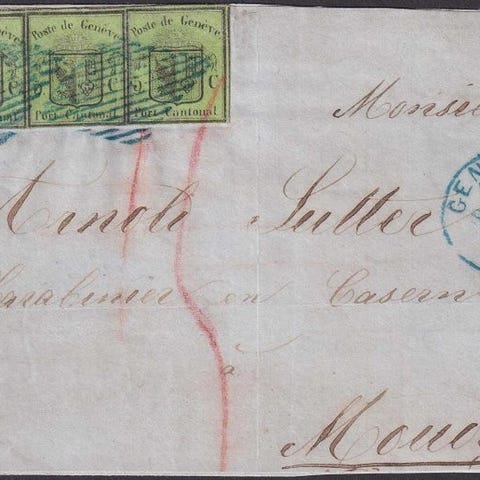 Poste de Genève Poste de Genève
5 C 5 C
Port Cantonal Port Cantonal
Monsie
GEN
Arnold Sutter
Carabinier en Casern
à
Moud